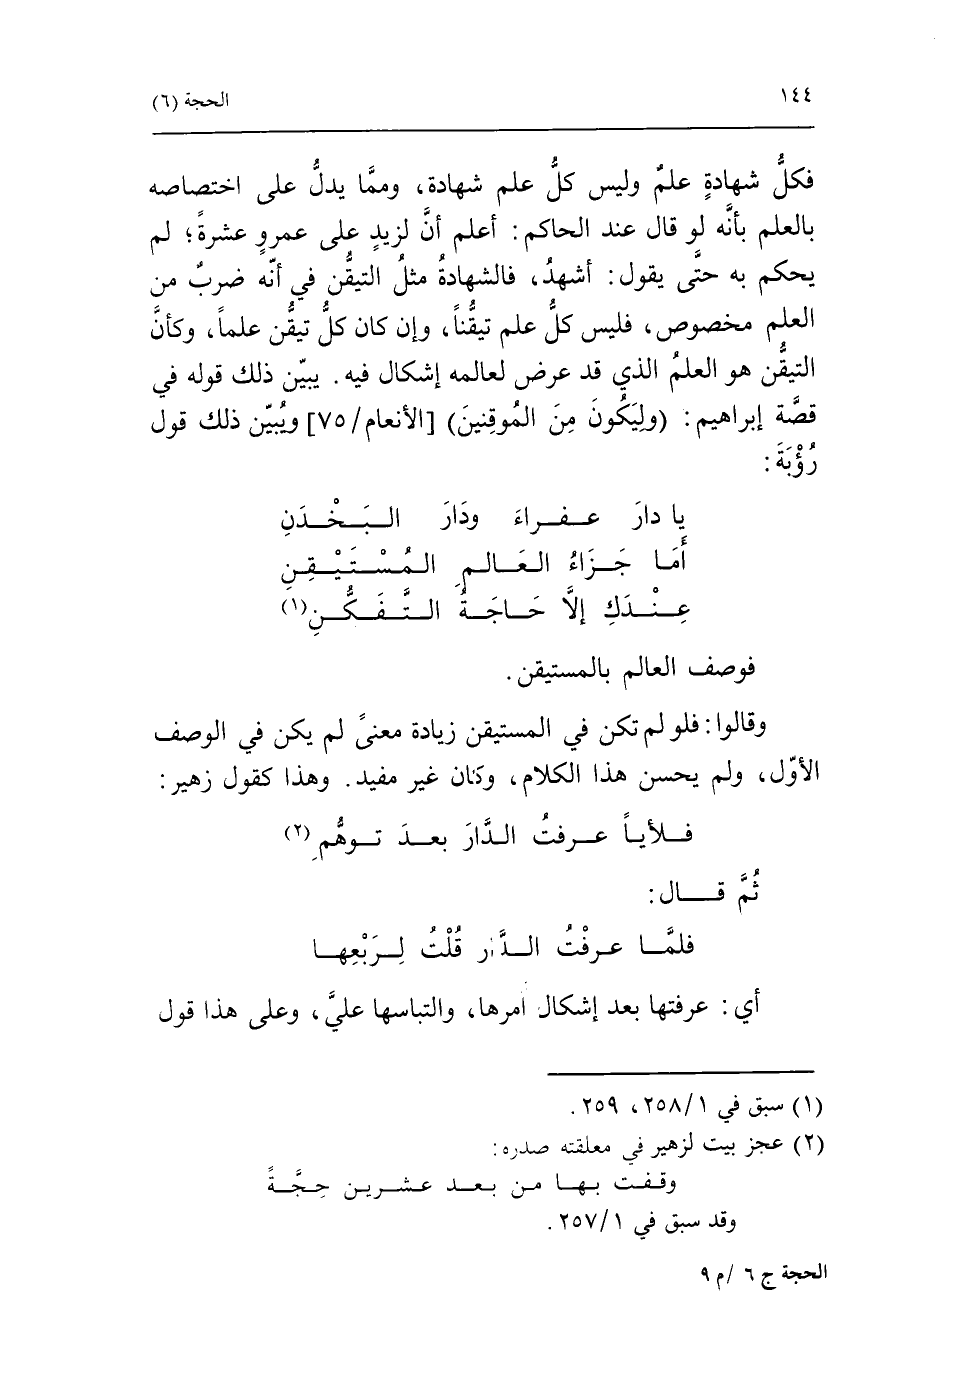 ١٤٤
الحجة (٦)
فكلُّ شهادةٍ علمٌ وليس كلُّ علم شهادة، وممَّا يدلُّ على اختصاصه
بالعلم بأنَّه لو قال عند الحاكم: أعلم أنَّ لزيدٍ على عمروٍ عشرةً؛ لم
يحكم به حتَّى يقول: أشهدُ، فالشهادةُ مثلُ التيقُّن في أنّه ضربٌ من
العلم مخصوص، فليس كلُّ علم تيقُّناً، وإن كان كلُّ تيقُّن علماً، وكأنَّ
التيقُّن هو العلمُ الذي قد عرض لعالمه إشكال فيه. يبيّن ذلك قوله في
قصَّة إبراهيم: (ولِيَكُونَ مِنَ المُوقِنينَ) [الأنعام/٧٥] ويُبيّن ذلك قول
رُؤْبَةَ:
يا دارَ عفراءَ ودَارَ البَخْدَنِ
أَمَا جَزَاءُ العَالمِ المُسْتَيْقِنِ
عِنْدَكِ إلاَّ حَاجَةُ التَّفَكُّنِ(١)
فوصف العالم بالمستيقن.
وقالوا: فلو لم تكن في المستيقن زيادة معنىً لم يكن في الوصف
الأوّل، ولم يحسن هذا الكلام، وكان غير مفيد. وهذا كقول زهير:
فلأياً عرفتُ الدَّارَ بعدَ توهُّمِ(٢)
ثُمَّ قال:
فلمَّا عرفْتُ الدَّار قُلْتُ لِرَبْعِها
أي: عرفتها بعد إشكال أمرها، والتباسها عليَّ، وعلى هذا قول
(١) سبق في ١/٢٥٨، ٢٥٩.
(٢) عجز بيت لزهير في معلقته صدره:
وقفت بها من بعد عشرين حِجَّةً
وقد سبق في ١/٢٥٧.
الحجة ج ٦ /م ٩